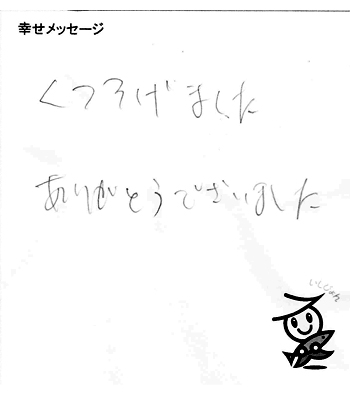 幸せメッセージ
くつろげました
ありがとうございました